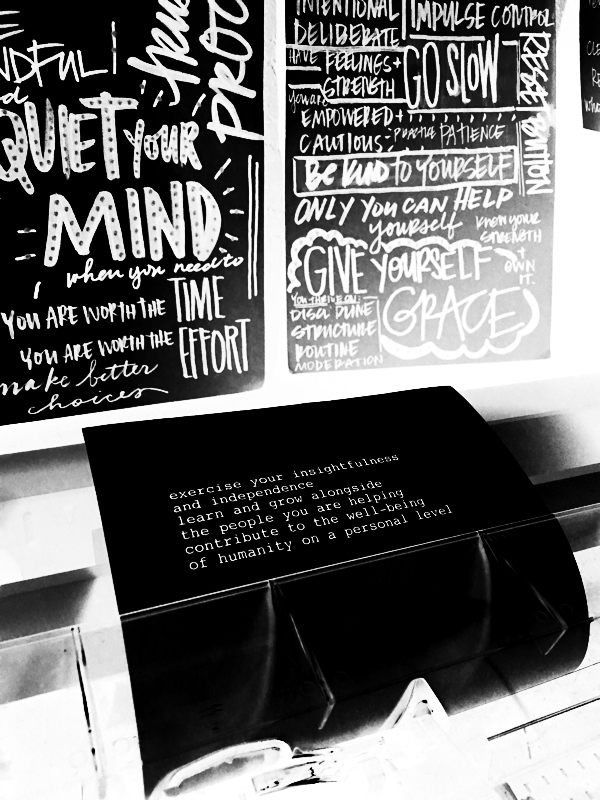 QUIET YOUR
MIND
when you need to
YOU ARE WORTH THE TIME
YOU ARE WORTH THE EFFORT
make better
choices
INTENTIONAL
DELIBERATE
HAVE FEELINGS+
STRENGTH
EMPOWERED+
CAUTIOUS:
IMPULSE CONTROL
GO SLOW
PATIENCE
BE KIND TO YOURSELF
ONLY YOU CAN HELP
yourself
KNOW YOUR
STRENGTH
+
OWN
IT.
GIVE YOURSELF
GRACE
YOU THRIVE ON:
DISCIPLINE
STRUCTURE
ROUTINE
MODERATION
exercise your insightfulness
and independence
learn and grow alongside
the people you are helping
contribute to the well-being
of humanity on a personal level